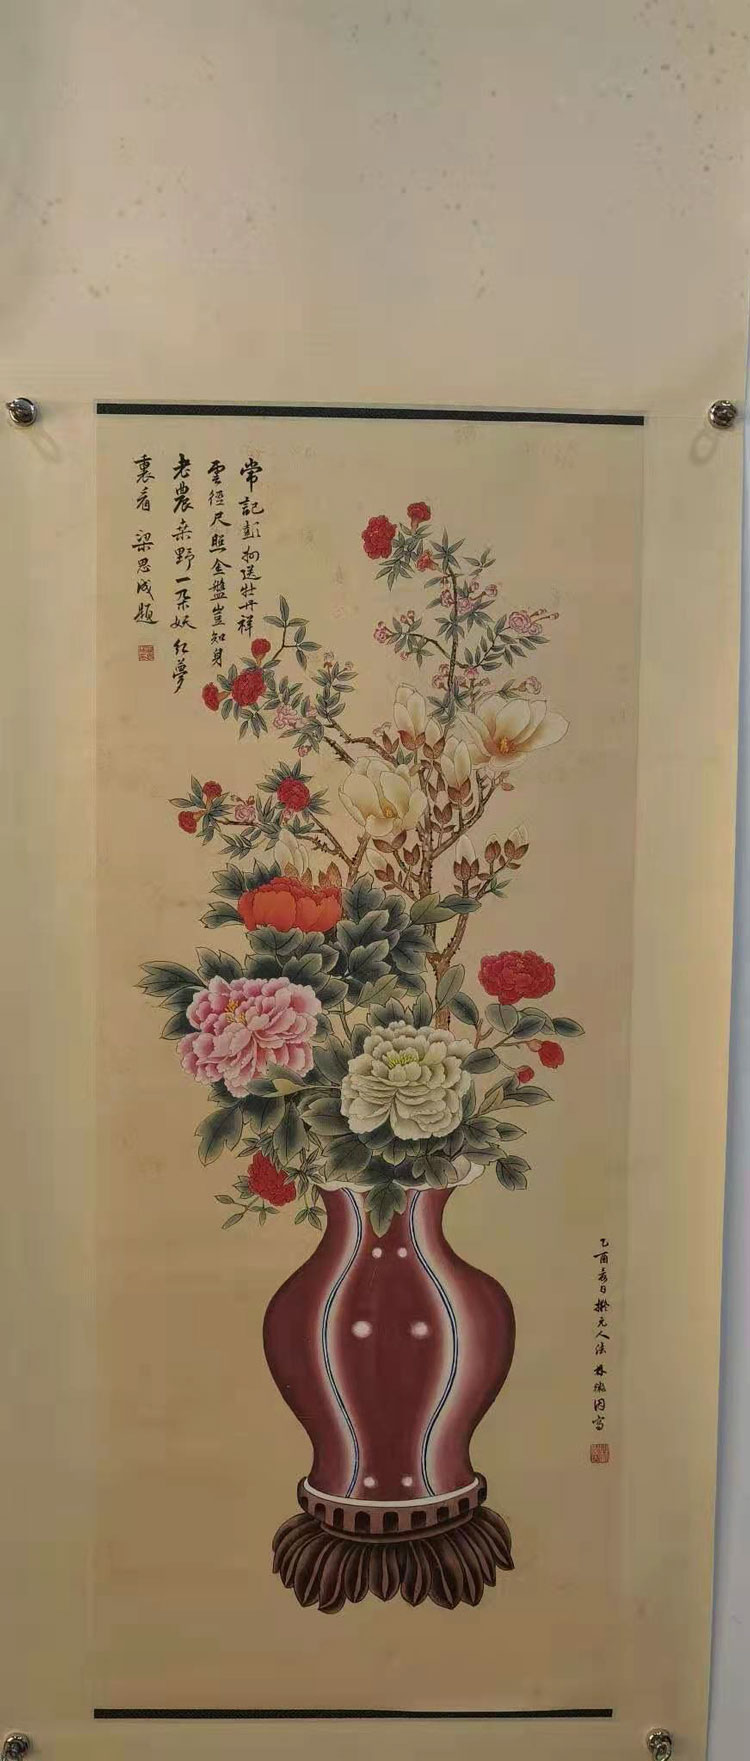 常記彭州送牡丹祥
雲徑尺照金盤豈知身
老農桑野一朵妖紅夢
裏看 梁思成題
乙酉春日擬元人法 林徽因寫